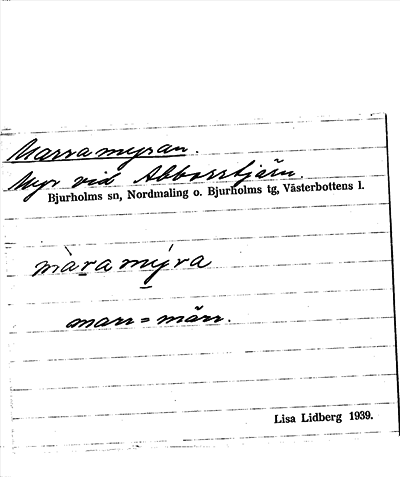 Marramyran.
Myr vid Abborrtjärn.
Bjurholms sn, Nordmaling o. Bjurholms tg, Västerbottens l.
màra mýra
marr = märr.
Lisa Lidberg 1939.